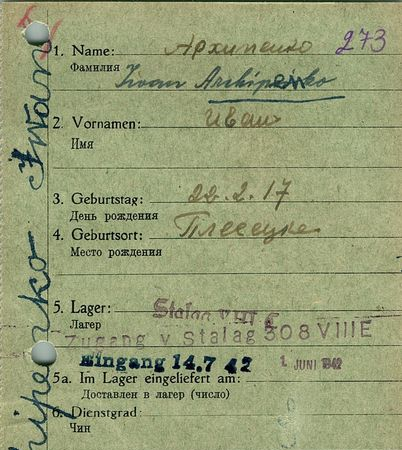 1. Name: Архипенко 273
Фамилия Iwan Archipenko
2. Vornamen: Иван
Имя
3. Geburtstag: 22.2.17
День рождения
4. Geburtsort: Плесецке
Место рождения
5. Lager: Stalag VIII C
Лагерь
Zugang v Stalag 308 VIIIE
Eingang 14.7 42 1. JUNI 1942
5a. Im Lager eingeliefert am:
Доставлен в лагер (число)
6. Dienstgrad:
Чин
hipenko Iwan